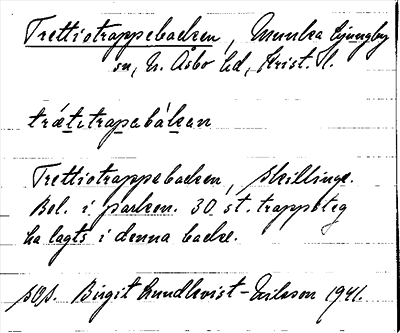 Trettiotrappebacken, Munka Ljungby
sn, N. Åsbo hd, Krist. l.
trǽtitrapabákan
Trettiotrappebacken, Skillinge.
Bel. i parken. 30 st. trappsteg
ha lagts i denna backe.
Birgit Lundkvist-Nilsson 1941.